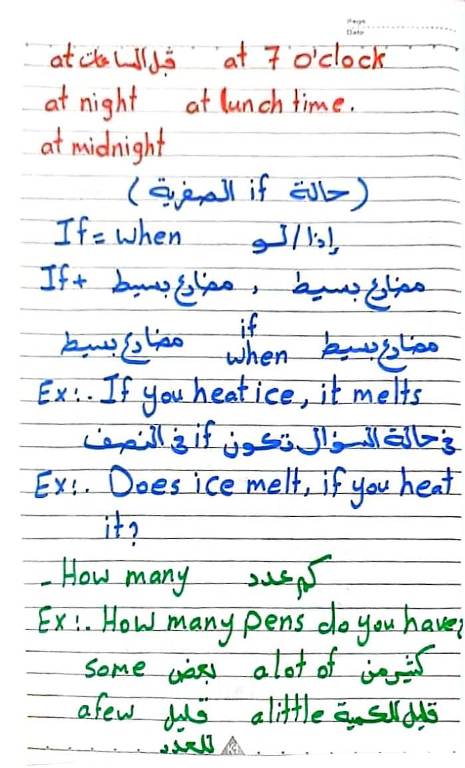 Page
Date
at قبل الساعات at 7 o'clock
at night at lunch time.
at midnight
(حالة if الصفرية)
If = when إذا/لو
If + مضارع بسيط , مضارع بسيط
مضارع بسيط if when مضارع بسيط
Ex:. If you heat ice, it melts
في حالة السؤال تكون if في النصف
Ex:. Does ice melt, if you heat
it?
- How many كم عدد
Ex:. How many pens do you have?
some بعض a lot of كثير من
a few قليل للعدد a little قليل للكمية